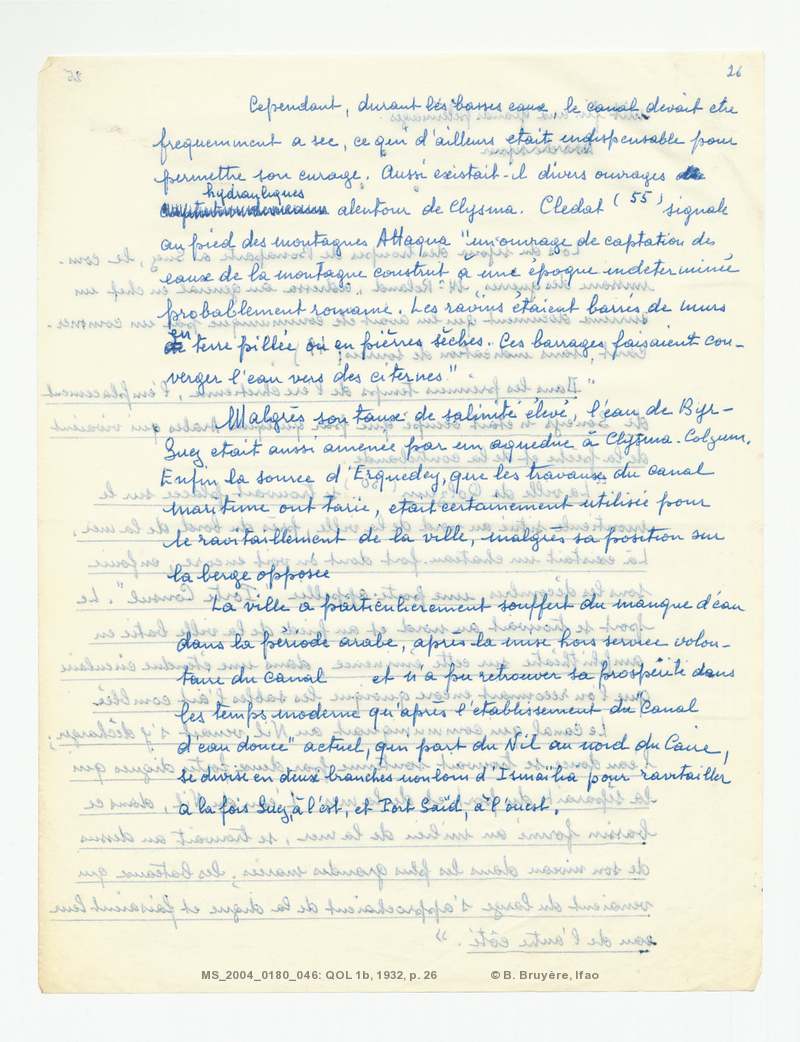 26
Cependant, durant les basses eaux, le canal devait etre
frequemment a sec, ce qui d'ailleurs etait indispensable pour
permettre son curage. Aussi existait-il divers ouvrages
hydrauliques
alentour de Clysma. Cledat (55) signale
au pied des montagnes Attaqua "un ouvrage de captation des
eaux de la montagne construit à une époque indeterminée
probablement romaine. Les ravins étaient barrés de murs
en
terre pillée ou en pierres sèches. Ces barrages faisaient con-
verger l'eau vers des citernes."
Malgrès son taux de salinité élevé, l'eau de Byr-
Suez etait aussi amenée par un aqueduc à Clysma-Colzum.
Enfin la source d'Erquedey, que les travaux du canal
maritime ont tarie, etait certainement utilisée pour
le ravitaillement de la ville, malgrès sa position sur
la berge opposee
La ville a particulierement souffert du manque d'eau
dans la période arabe, après la mise hors service volon-
taire du Canal et n'a pu retrouver sa prospérité dans
les temps moderne qu'après l'etablissement du "Canal
d'eau douce" actuel, qui part du Nil au nord du Caire,
se divise en deux branches non loin d'Ismaïlia pour ravitailler
a la fois Suez, à l'est, et Port Saïd, à l'ouest.
MS_2004_0180_046: QOL 1b, 1932, p. 26 © B. Bruyère, Ifao